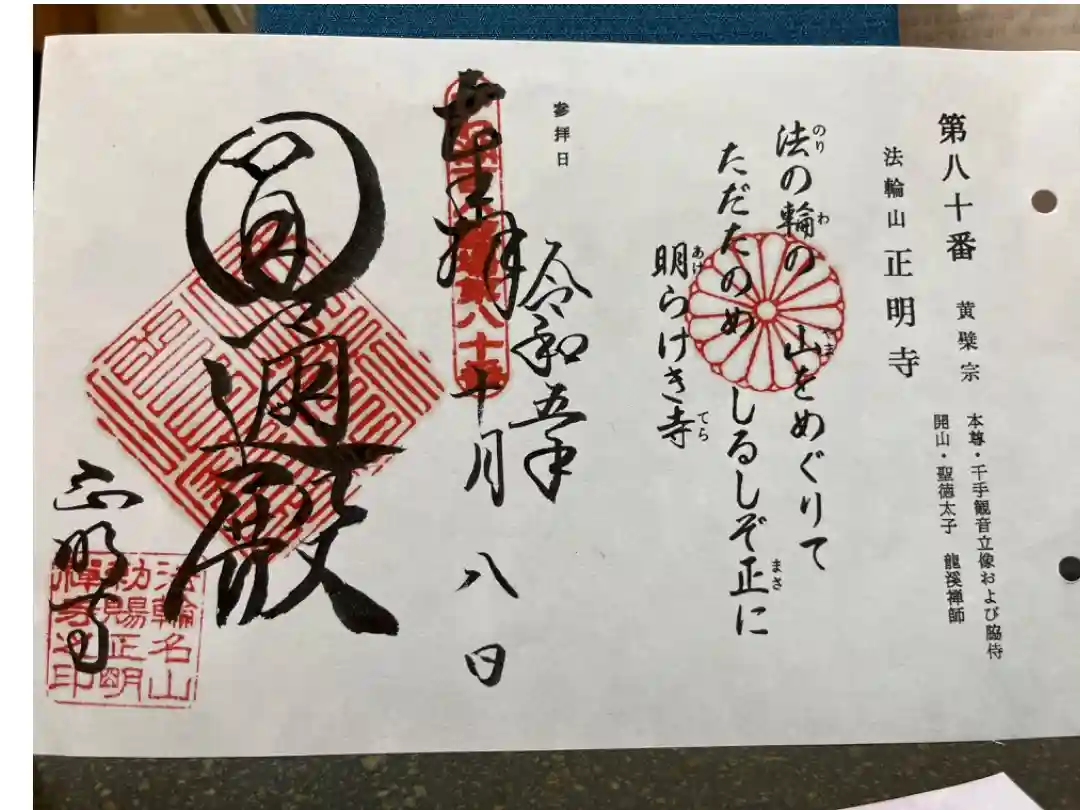 第八十番 黄檗宗
本尊・千手観音立像および脇侍
開山・聖徳太子 龍溪禅師
法輪山 正明寺
法の輪の 山をめぐりて
のり わ やま
ただたのめ しるしぞ正に
まさ
明らけき寺
あけ てら
参拝日
令和五年
十月八日
奉拝
八十番
圓通殿
正明寺
法輪名山
勅賜正明
禅寺之印